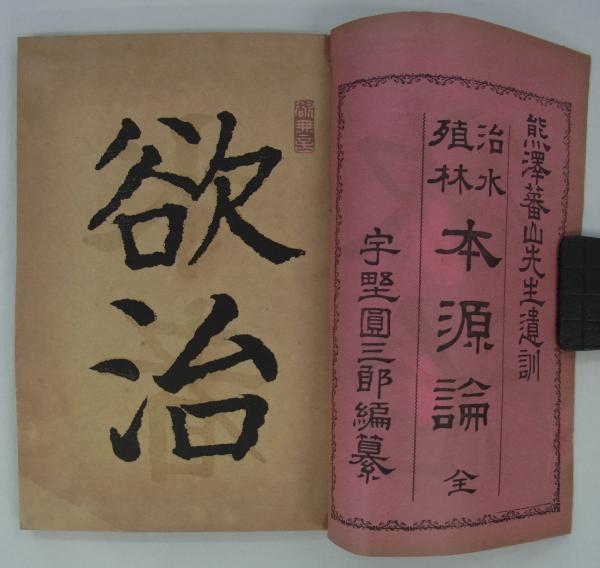 熊澤蕃山先生遺訓
治水
殖林
本源論 全
宇野圓三郎編纂
欲治